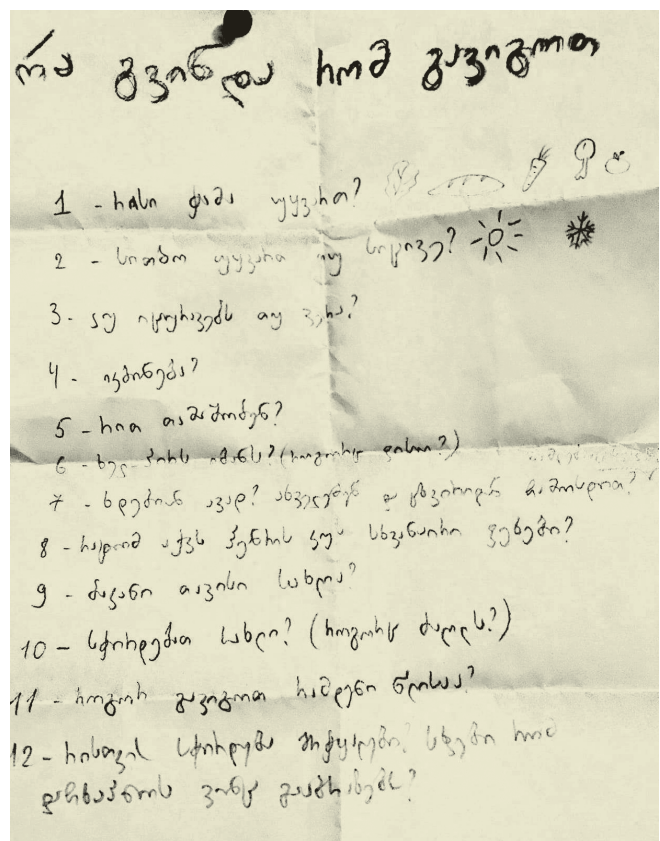 რა გვინდა რომ გავიგოთ
1 - რისი ჭამა უყვართ?
2 - სითბო უყვართ თუ სიცივე?
3 - კუ იცურავებს თუ ვერა?
4 - იკბინება?
5 - რით თამაშობენ?
6 - ხელ-პირს იბანს? (როგორც დისი?)
7 - ხდებიან ავად? ახველებენ და ცხვირიდან ჩამოსდით?
8 - რატომ აქვს პენრის კუს სხვანაირი ფეხები?
9 - ბაკანი თავისი სახლია?
10 - სჭირდებათ სახლი? (როგორც ძაღლს?)
11 - როგორ გავიგოთ რამდენი წლისაა?
12 - რისთვის სჭირდება ბრჭყალები? სხვები რომ
დარხაპნოს ვინც გააბრაზებს?